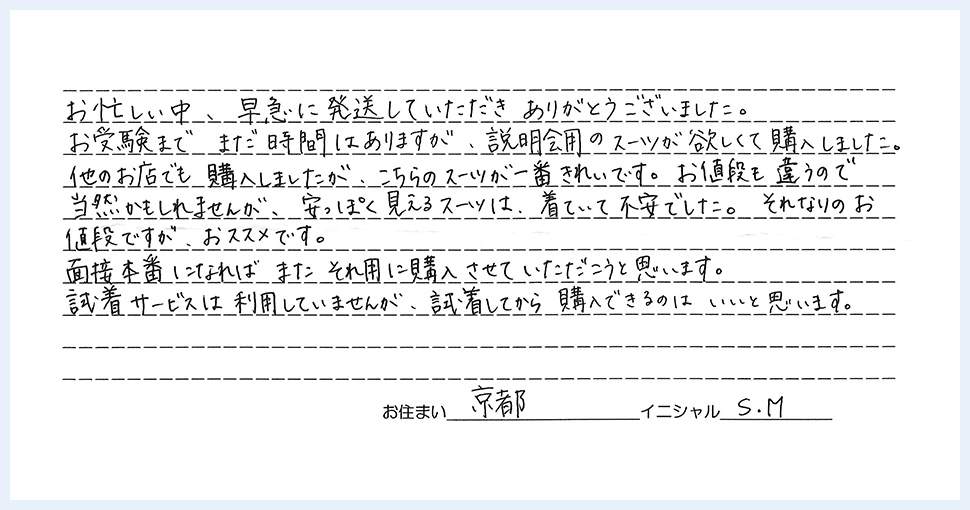 お忙しい中、早急に発送していただき ありがとうございました。
お受験まで まだ時間はありますが、説明会用のスーツが欲しくて購入しました。
他のお店でも 購入しましたが、こちらのスーツが一番きれいです。お値段も 違うので
当然かもしれませんが、安っぽく見えるスーツは、着ていて不安でした。それなりのお
値段ですが、おススメです。
面接本番になれば また それ用に購入させていただこうと思います。
試着サービスは利用していませんが、試着してから 購入できるのは いいと思います。
お住まい 京都 イニシャル S.M